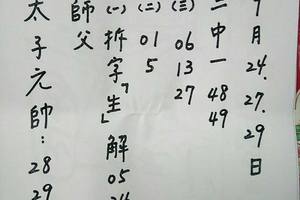 7月24.27.29日
二中一 48 49
(三) 06 13 27
(二) 01 5
(一) 拆字「生」解 05
師父
太子元帥：28 29